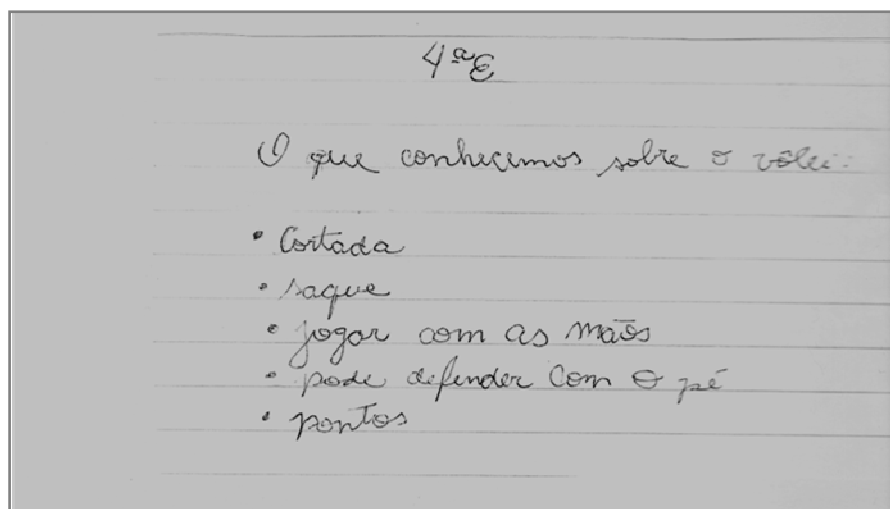 4ªE
O que conhecemos sobre o vôlei:
• Cortada
• saque
• jogar com as mãos
• pode defender com o pé
• pontos